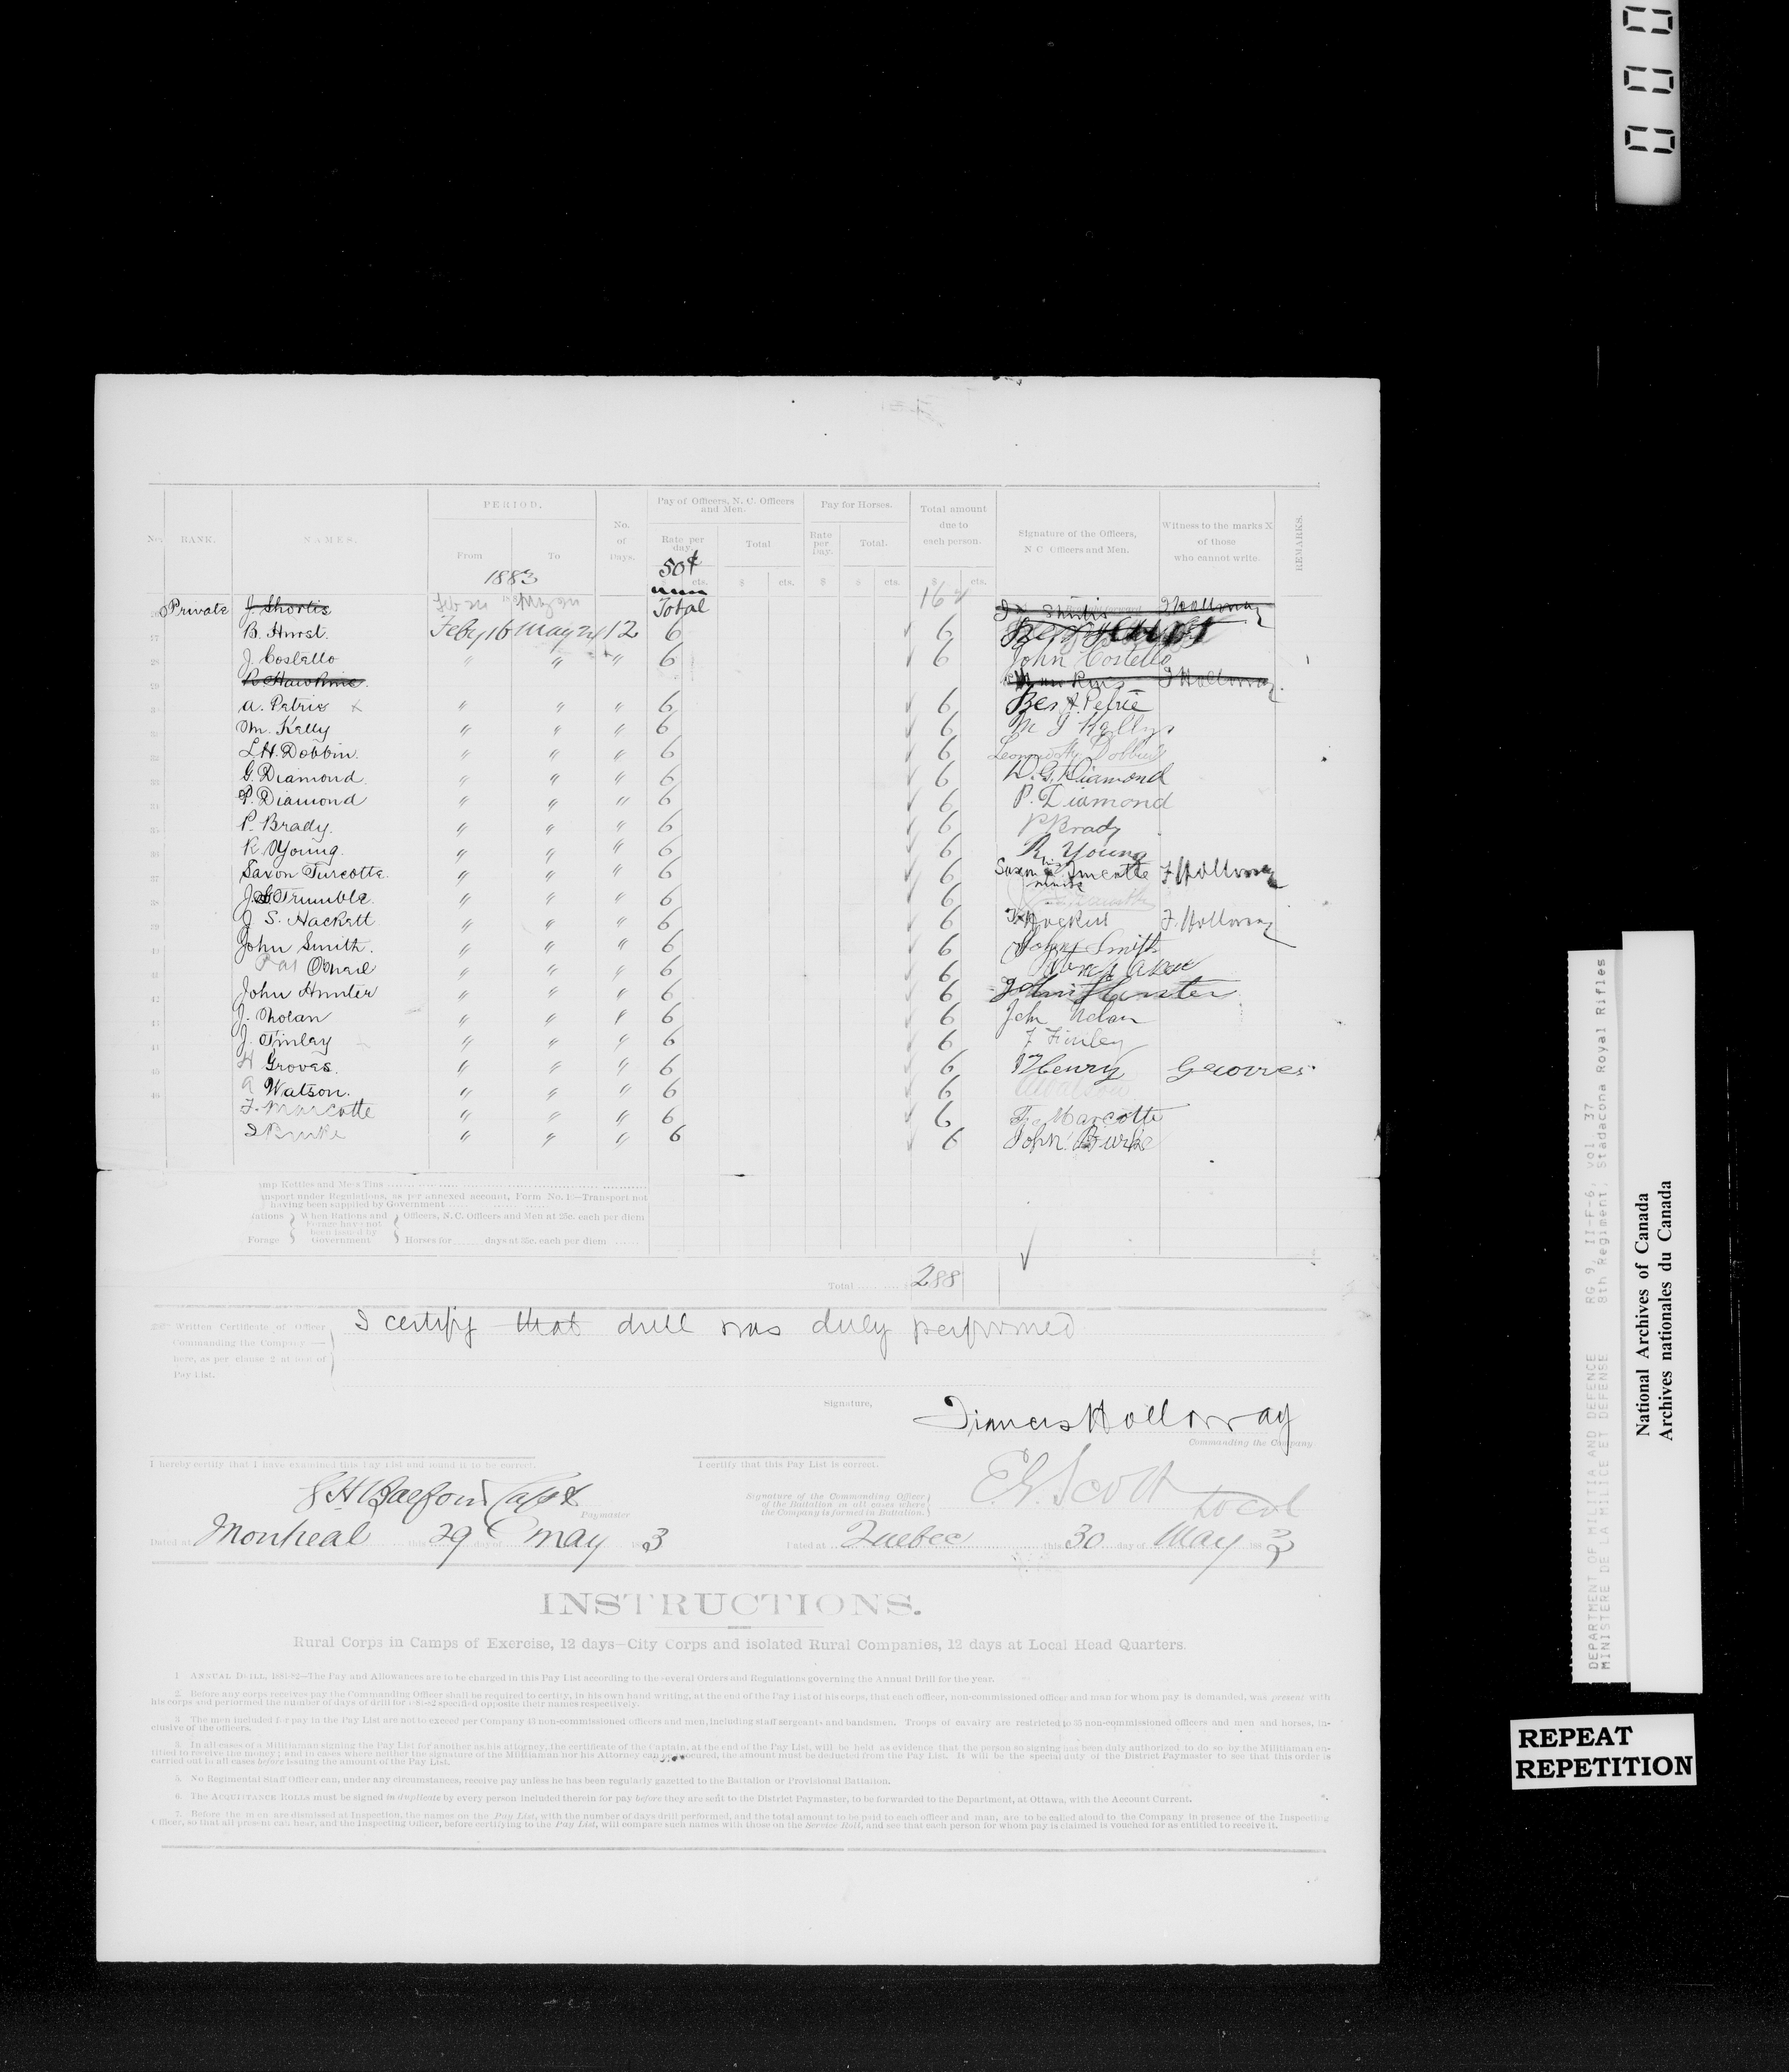 No. RANK. NAMES. PERIOD. No. of Days. Pay of Officers, N. C. Officers and Men. Pay for Horses. Total amount due to each person. Signature of the Officers, N. C. Officers and Men. Witness to the marks X of those who cannot write. REMARKS.
From To Rate per day. Total Rate per Day. Total.
1883 50¢ $ cts. $ $ cts. $ cts.
Private J. Shortis Total 162 Shortis F Holloway
B. Hurst. Feby 16 May 24 12 6 6
J. Costello " " " 6 6 John Costello
R Hawkins. F Holloway
A. Petrie x " " " 6 6 A. Petrie
M. Kelly " " " 6 6 M J Kelly
L.H. Dobbin. " " " 6 6 Dobbin
G. Diamond. " " " 6 6 W. G. Diamond
P. Diamond " " " 6 6 P. Diamond
P. Brady. " " " 6 6 P Brady
R. Young. " " " 6 6 R. Young
Saxon Turcotte. " " " 6 6 Saxon Turcotte F Holloway
J. Trumble. " " " 6 6
J. S. Hackett " " " 6 6 Hackett F. Holloway
John Smith. " " " 6 6 John Smith
Pat O'Neil " " " 6 6
John Hunter " " " 6 6 John Hunter
J. Nolan " " " 6 6 John Nolan
J. Finlay " " " 6 6 J Finley
H Groves. " " " 6 6 Henry Groves
A Watson. " " " 6 6 A Watson
F. Marcotte " " " 6 6 F. Marcotte
J Burke " " " 6 6 John Burke
Camp Kettles and Mess Tins
Transport under Regulations, as per annexed account, Form No. 1—Transport not
having been supplied by Government
Rations When Rations and Officers, N.C. Officers and Men at 25c. each per diem
Forage have not
been issued by
Forage Government Horses for days at 35c. each per diem
Total 288
Written Certificate of Officer
Commanding the Company
here, as per clause 2 at foot of
Pay List.
I certify that drill was duly performed
Signature,
Francis Holloway
Commanding the Company
I hereby certify that I have examined this Pay List and found it to be correct. I certify that this Pay List is correct.
Capt
Paymaster
Signature of the Commanding Officer
of the Battalion in all cases where
the Company is formed in Battalion.
E.G. Scott
Dated at Montreal this 29 day of May 3
Dated at Quebec this 30 day of May 188 3
INSTRUCTIONS.
Rural Corps in Camps of Exercise, 12 days—City Corps and isolated Rural Companies, 12 days at Local Head Quarters.
1 ANNUAL DRILL, 1881-82—The Pay and Allowances are to be charged in this Pay List according to the several Orders and Regulations governing the Annual Drill for the year.
2. Before any corps receives pay the Commanding Officer shall be required to certify, in his own hand writing, at the end of the Pay List of his corps, that each officer, non-commissioned officer and man for whom pay is demanded, was present with
his corps and performed the number of days of drill for specified opposite their names respectively.
3 The men included for pay in the Pay List are not to exceed per Company 43 non-commissioned officers and men, including staff sergeants and bandsmen. Troops of cavalry are restricted to 35 non-commissioned officers and men and horses, in-
clusive of the officers.
In all cases of a Militiaman signing the Pay List for another as his attorney, the certificate of the Captain, at the end of the Pay List, will be held as evidence that the person so signing has been duly authorized to do so by the Militiaman en-
titled to receive the money; and in cases where neither the signature of the Militiaman nor his Attorney can be procured, the amount must be deducted from the Pay List. It will be the special duty of the District Paymaster to see that this order is
carried out in all cases before issuing the amount of the Pay List.
5. No Regimental Staff Officer can, under any circumstances, receive pay unless he has been regularly gazetted to the Battalion or Provisional Battalion.
6. The ACQUITTANCE ROLLS must be signed in duplicate by every person included therein for pay before they are sent to the District Paymaster, to be forwarded to the Department, at Ottawa, with the Account Current.
7. Before the men are dismissed at Inspection, the names on the Pay List, with the number of days drill performed, and the total amount to be paid to each officer and man, are to be called aloud to the Company in presence of the Inspecting
Officer, so that all present can hear, and the Inspecting Officer, before certifying to the Pay List, will compare such names with those on the Service Roll, and see that each person for whom pay is claimed is vouched for as entitled to receive it.
DEPARTMENT OF MILITIA AND DEFENCE RG 9, II-F-6, vol 37
MINISTERE DE LA MILICE ET DEFENSE 8th Regiment, Stadacona Royal Rifles
National Archives of Canada
Archives nationales du Canada
REPEAT
REPETITION
000